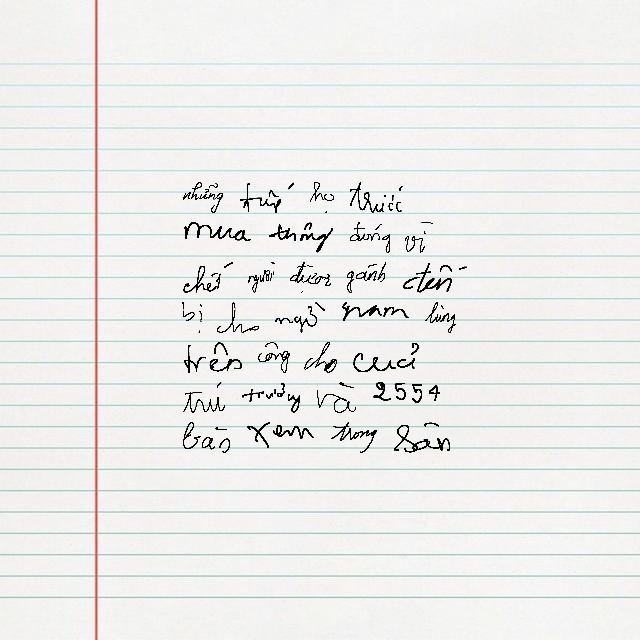 những tuý họ trước
mua thông đúng vì
chết người được gánh đến
bị cho ngữ nam lùng
trên công cho cuả
trú trưởng và 2554
bản xem trong sân